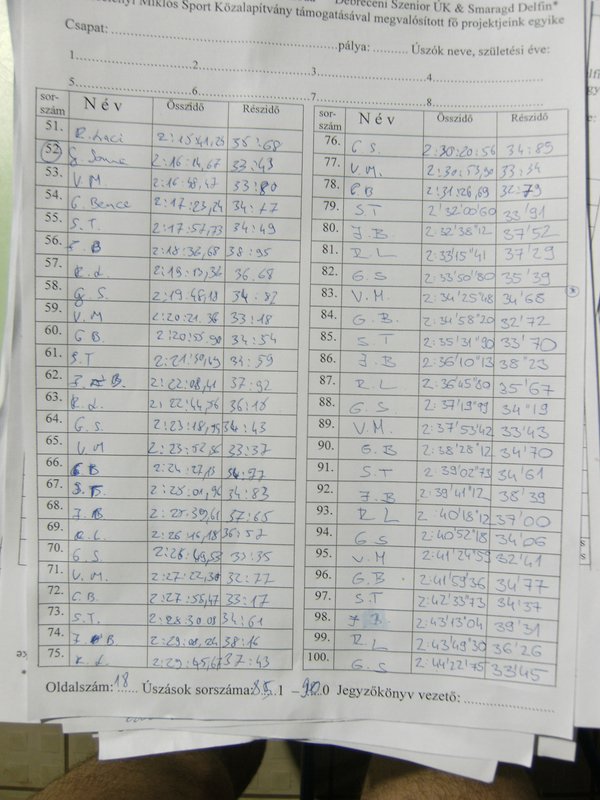 Miklós Sport Közalapítvány támogatásával megvalósított fő projektjeink egyike
Debreceni Szenior ÚK & Smaragd Delfin*
Csapat: pálya: Úszók neve, születési éve:
1 2 3 4
5 6 7 8
sor-szám Név Összidő Részidő
51. R. Laci 35:68
52. 2:16:14,67 33:43
53. V.M 2:16:48,47 33:80
54. G. Bence 2:17:23,24 34:77
55. S.T. 2:17:57,73 34:49
56. 2:18:36,68 38:95
57. R.L. 2:19:13,36 36.68
58. G.S. 2:19:48,18 34:82
59. V.M 2:20:21.36 33:18
60. G B. 2:20:55.90 34:54
61. S.T 34:59
62. B. 2:22:08,41 37:92
63. R.L. 2:22:44,56 36:15
64. G.S. 34:43
65. V.M 2:23:52,36 33:37
66. G B 2:24:27,13 34:77
67. 34:83
68. J. B 2:25:39,61 37:65
69. R.L. 2:26:16,18 36:57
70. G.S. 2:26:49,53 33:35
71. V.M. 2:27:22,30 32:77
72. G.B. 2:27:55,47 33:17
73. S.T. 2:28:30,08 34:61
74. B 38:16
75. R.L 2:29:45,67 37:43
sor-szám Név Összidő Részidő
76. G S. 2:30:20:56 34:89
77. V.M. 2:30:53,90 33:34
78. G B 2:31:26,69 32:79
79. S.T 2'32'00'60 33'91
80. J.B. 2'32'38"12 37'52
81. R.L 2:33'15"41 37'29
82. G.S 2:33'50"80 35'39
83. V.M. 2:34'25"48 34'68
84. G.B. 2:34'58"20 32'72
85. S.T 2:35'31"90 33'70
86. J.B 2:36'10"13 38"23
87. R.L. 2:36'45"80 35'67
88. G.S 2:37'19"99 34"19
89. V.M. 2:37'53'42 33'43
90. G.B 2:38'28"12 34'70
91. S.T 2:39'02"73 34'61
92. J.B 2:39'41"12 38'39
93. R L 2:40'18"12 37'00
94. G S 2:40'52"18 34'06
95. V.M 2:41'24"59 32'41
96. G.B. 2:41'59'36 34'77
97. S.T 2:42'33"73 34'37
98. J B 2:43'13'04 39'31
99. R L 2:43'49"30 36'26
100. G.S. 2:44'22"75 33'45
Oldalszám: 18 Úszások sorszáma: 85.1 – 90.0 Jegyzőkönyv vezető: